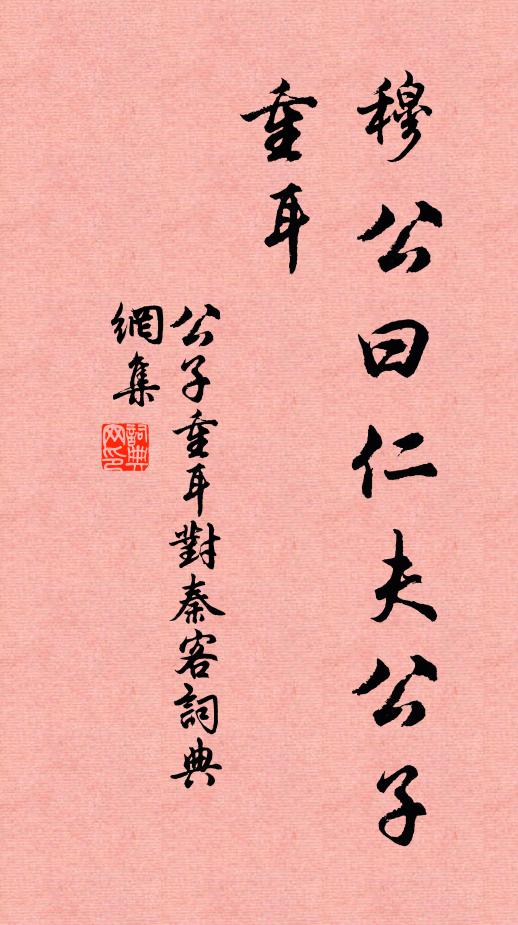 穆公曰仁夫公子
重耳
公子重耳對秦客詞典
網集
詞典
网印